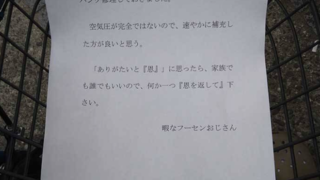 空気圧が完全ではないので、速やかに補充し
た方が良いと思う。
「ありがたいと『恩』」に思ったら、家族で
も誰でもいいので、何か一つ『恩を返して』下
さい。
暇なフーセンおじさん